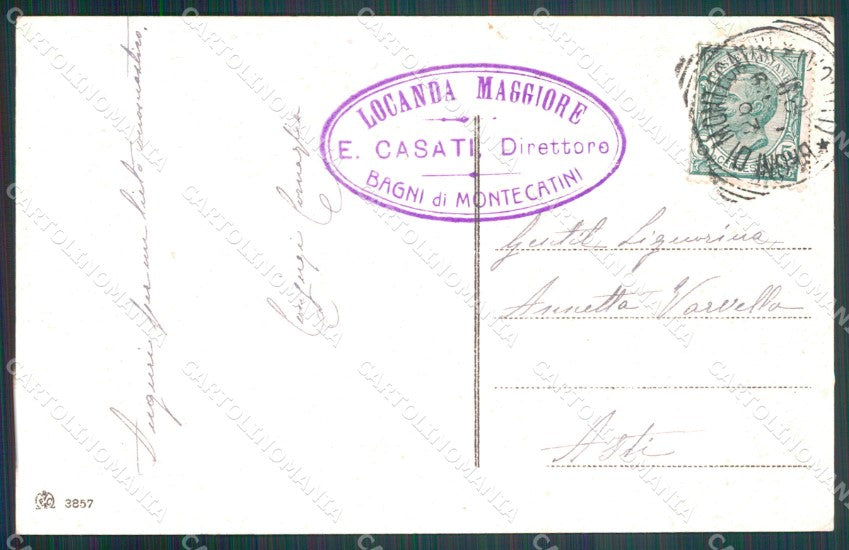 Auguri per un lieto onomastico.
Coniugi
LOCANDA MAGGIORE
E. CASATI, Direttore
BAGNI di MONTECATINI
BAGNI DI MONTECATINI
Gentil Signorina
Annetta Varvello
Asti
3857
CARTOLINOMANIA